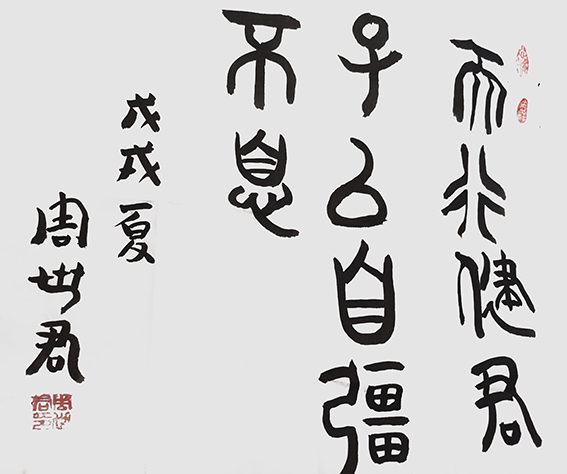 天行健君
子以自彊
不息
戊戌夏
周世君